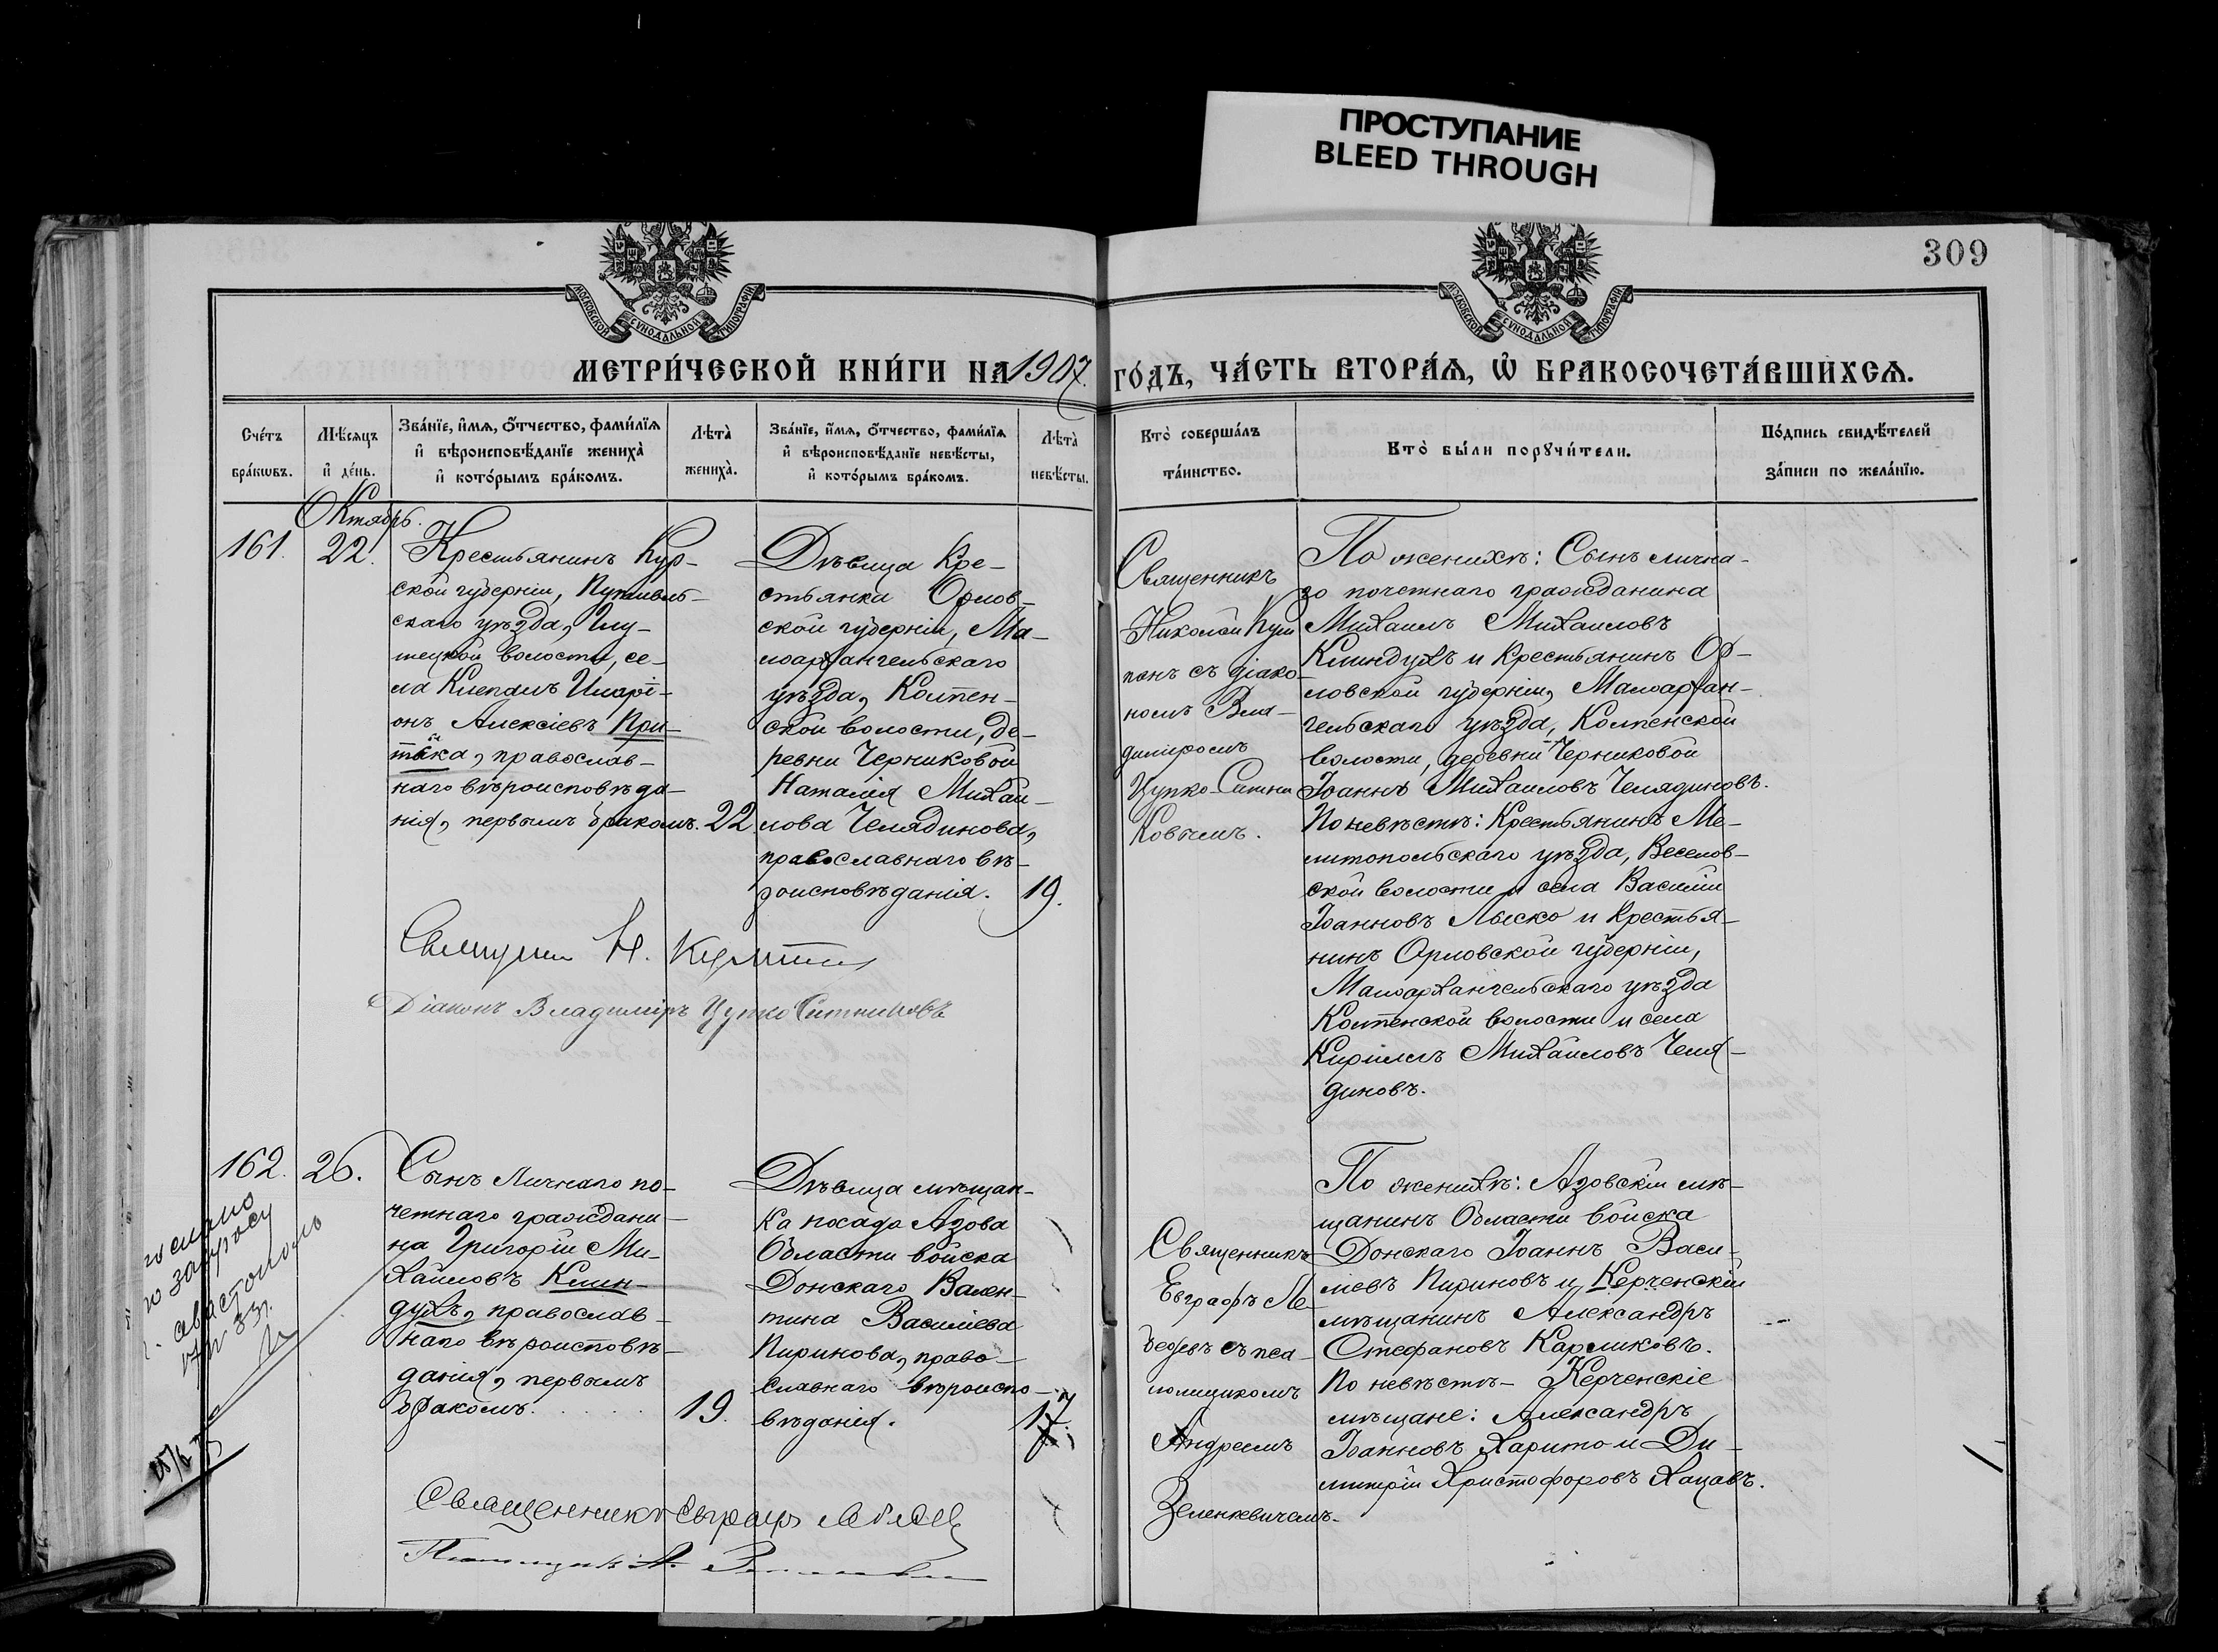 ПРОСТУПАНИЕ
BLEED THROUGH
309
МОСКОВСКОЙ СѴНОДАЛЬНОЙ ТИПОГРАФІИ
МОСКОВСКОЙ СѴНОДАЛЬНОЙ ТИПОГРАФІИ
МЕТРИ́ЧЕСКОЙ КНИ́ГИ НА 1907 ГО́ДЪ, ЧА́СТЬ ВТОРА́Ѧ, Ѽ БРАКОСОЧЕТА́ВШИХСѦ.
Сче́тъ
бра́кѡвъ.
Мѣ́сѧцъ
и҆ де́нь.
Зва́нїе, и҆́мѧ, ѻ҆́тчество, фами́лїѧ
и҆ вѣроисповѣ́данїе жениха̀
и҆ кото́рымъ бра́комъ.
Лѣта̀
жениха̀.
Зва́нїе, и҆́мѧ, ѻ҆́тчество, фами́лїѧ
и҆ вѣроисповѣ́данїе невѣ́сты,
и҆ кото́рымъ бра́комъ.
Лѣта̀
невѣ́сты.
Кто̀ соверша́лъ
та́инство.
Кто̀ бы́ли порꙋчи́тели.
По́дпись свидѣ́телей
за́писи по жела́нїю.
Октябрь.
161.
22.
Крестьянинъ Кур-
ской губерніи, Путивль-
скаго уѣзда,
волости, се-
ла Клепалъ Иларі-
онъ Алексіевъ При-
тыка, православ-
наго вѣроисповѣда-
нія, первымъ бракомъ. 22
Дѣвица Кре-
стьянка Орлов-
ской губерніи, Ма-
лоархангельскаго
уѣзда, Колпен-
ской волости, де-
ревни Черниковой
Наталія Михаи-
лова Челядинова,
православнаго вѣ-
роисповѣданія. 19.
Священникъ
Николай Куш
панъ съ діако-
номъ Вла-
диміромъ
Цупко-Ситни
ковымъ.
По женихѣ: Сынъ лична-
го почетнаго гражданина
Михаилъ Михаиловъ
Клиндухъ и Крестьянинъ Ор-
ловской губерніи, Малоархан-
гельскаго уѣзда, Колпенской
волости, деревни Черниковой
Іоаннъ Михаиловъ Челядиновъ.
По невѣстѣ: Крестьянинъ Ме-
литопольскаго уѣзда, Веселов-
ской волости и села Василій
Іоанновъ Лыско и Крестья-
нинъ Орловской губерніи,
Малоархангельскаго уѣзда
Колпенской волости и села
Кириллъ Михаиловъ Челя-
диновъ.
Н.
Діаконъ Владиміръ Цупко Ситниковъ
162.
26.
Сынъ Личнаго по-
четнаго граждани-
на Григорій Ми-
хаиловъ Клин-
духъ, православ-
наго вѣроисповѣ-
данія, первымъ
бракомъ. 19.
Дѣвица мѣщан-
ка посада Азова
Области войска
Донскаго Вален-
тина Василіева
Пиринова, право-
славнаго вѣроиспо-
вѣданія. 17
Священникъ
Евграфъ Ле-
бедевъ съ пса-
ломщикомъ
Андреемъ
Зеленкевичемъ.
По женихѣ: Азовскій мѣ-
щанинъ Области войска
Донскаго Іоаннъ Васи-
ліевъ Пириновъ и Керченскій
мѣщанинъ Александръ
Стефановъ Карликовъ.
По невѣстѣ- Керченскіе
мѣщане: Александръ
Іоанновъ Харито и Ди-
митрій Христофоровъ Хацавъ.
Священникъ Евграфъ